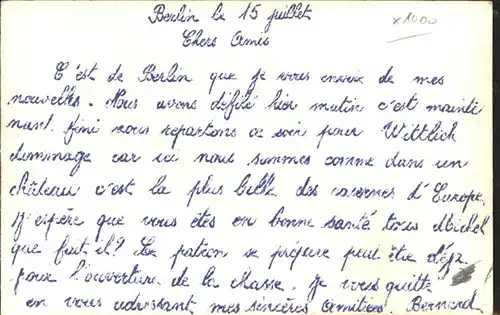 Berlin le 15 juillet
x1000
Chers Amis
C'est de Berlin que je vous envoie de mes
nouvelles. Nous avons défilé hier matin c'est mainte
nant fini nous repartons ce soir pour Wittlich
dommage car ici nous sommes comme dans un
château c'est la plus belle des casernes d'Europe.
J'espère que vous êtes en bonne santé tous Michel
que fait-il? Le patron se prépare peut être déjà
pour l'ouverture de la chasse. Je vous quitte
en vous adressant mes sincères amitiés. Bernard